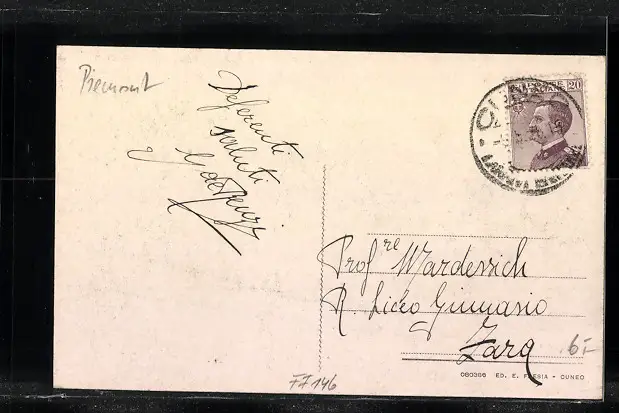 Piemont
Deferenti
saluti
20
Prof.re Wardessich
R. Liceo Ginnasio
Zara
6.-
080366 ED. E. FRESIA - CUNEO
FF146